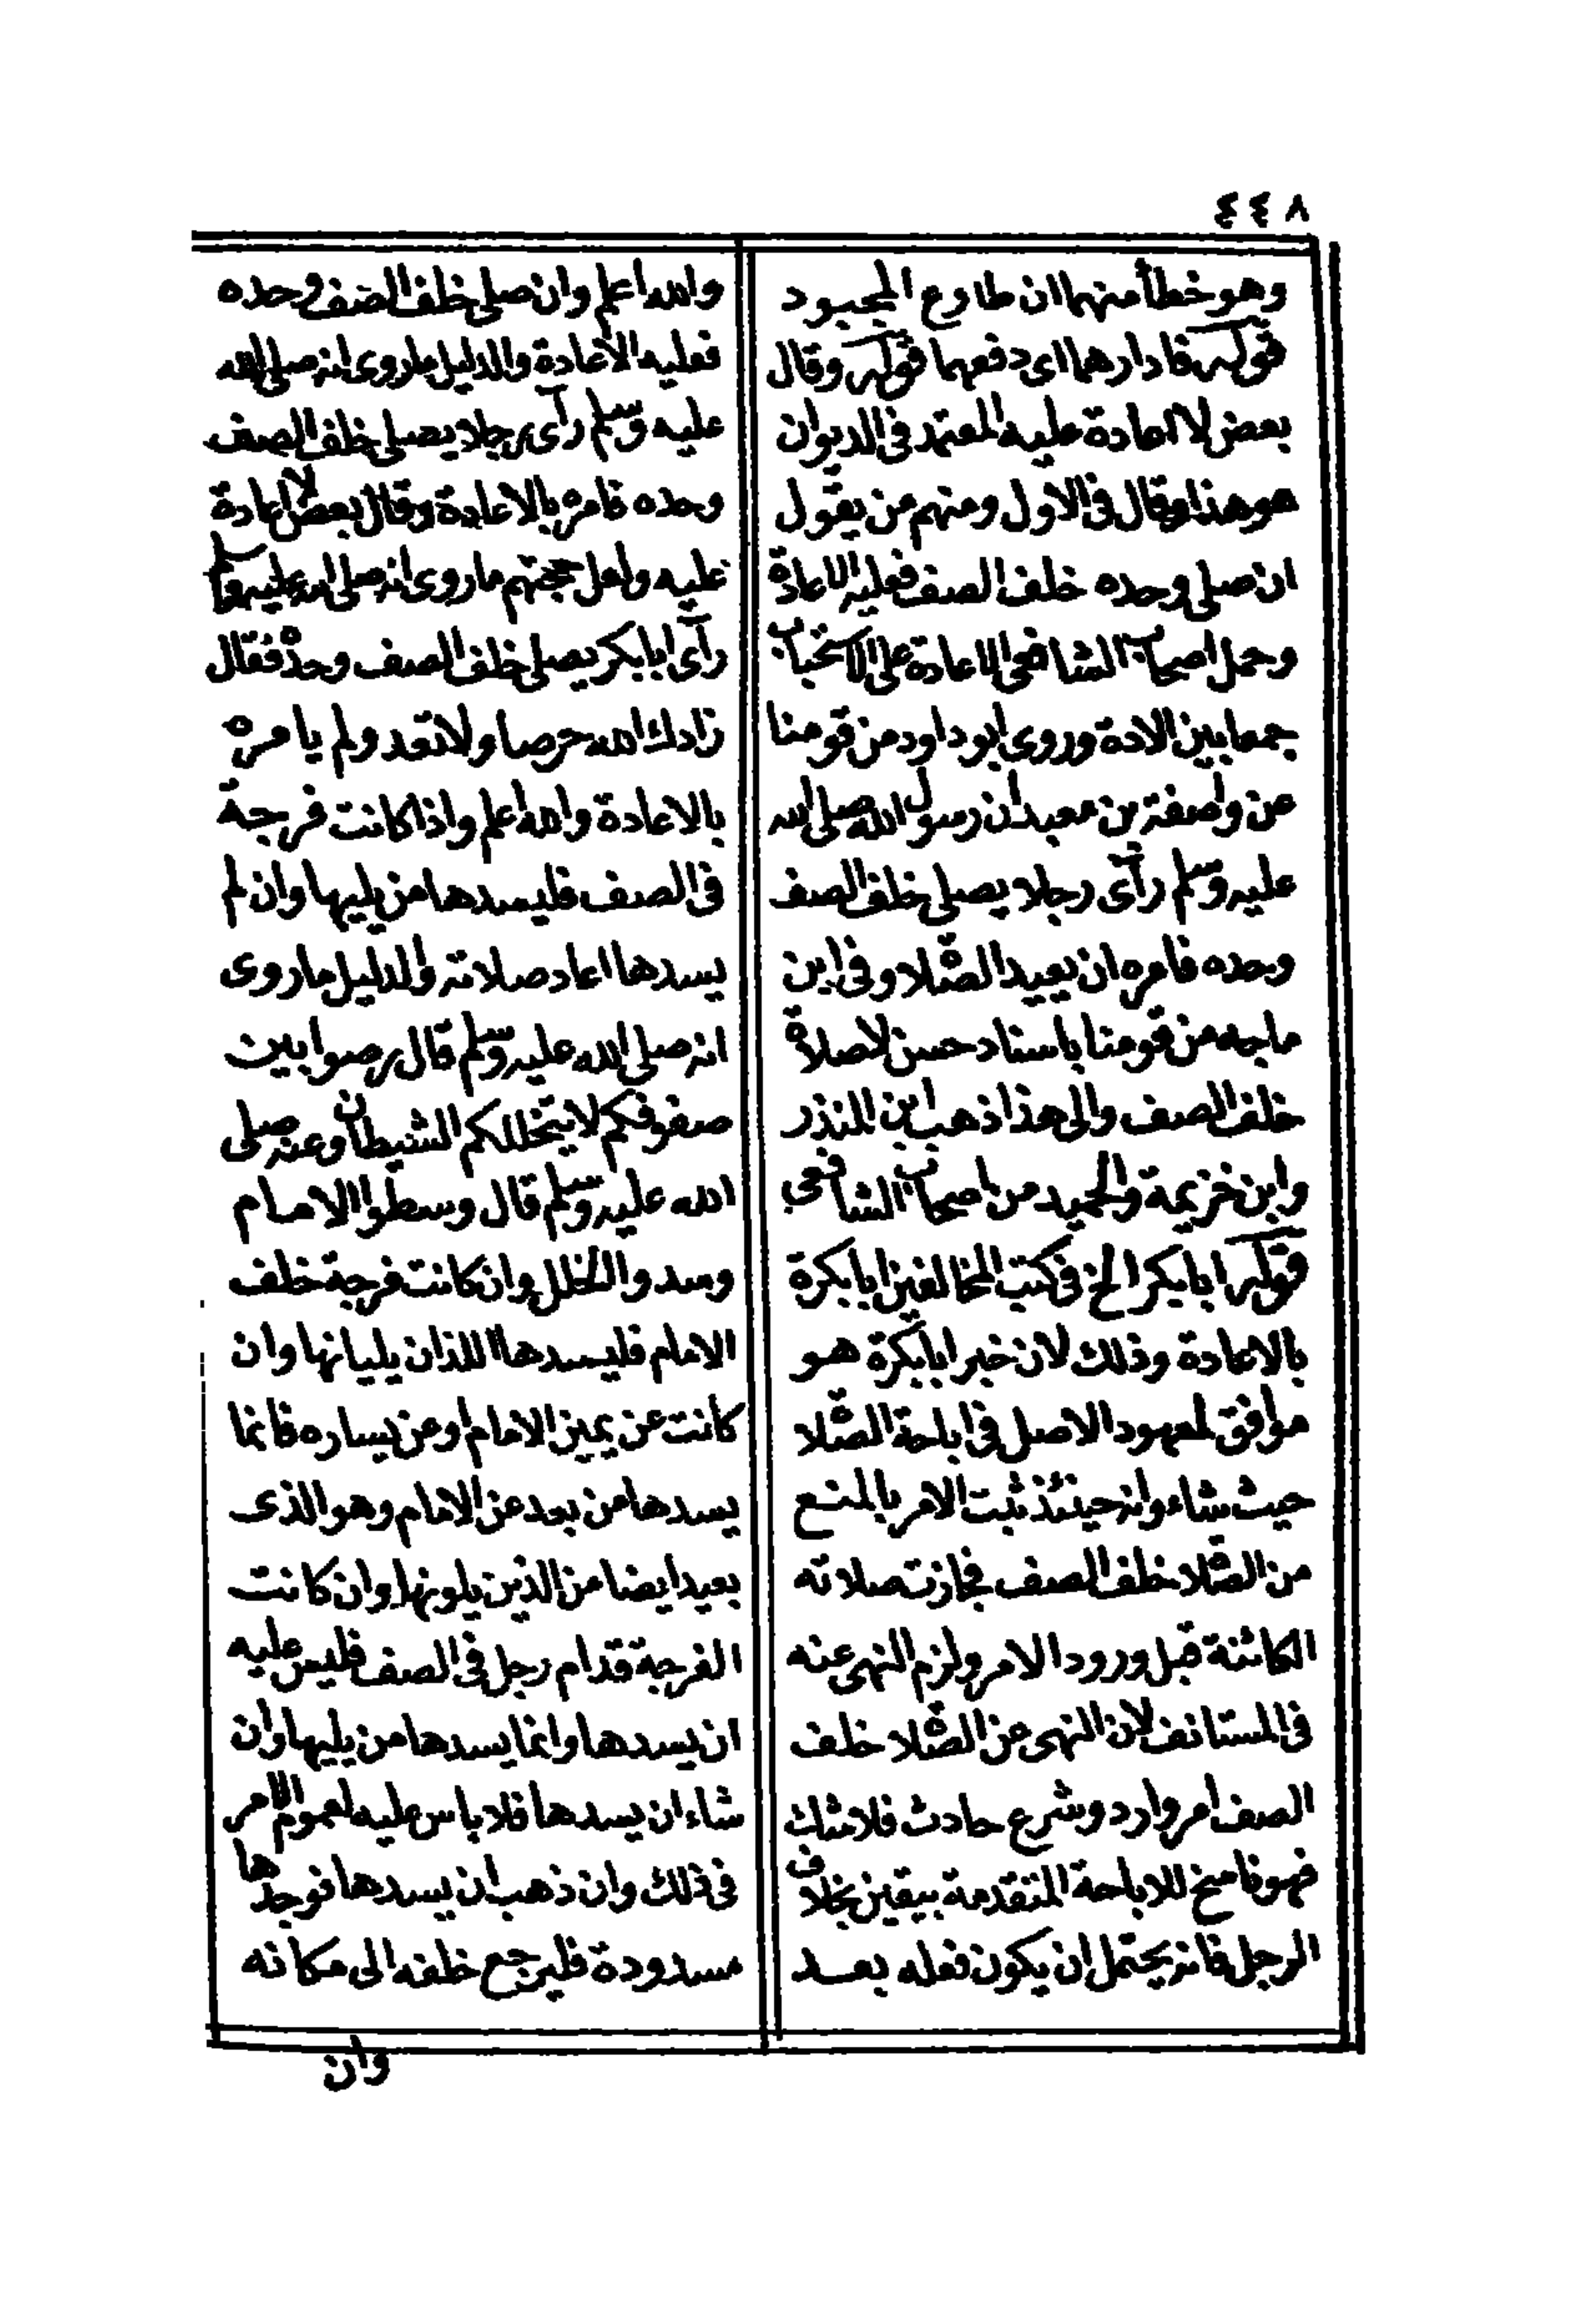 ٤٤٨
وهو خطأ منهما ان طاوع المجبود
قوله فادارهما اى دفعهما قوله وقال
بعض لا اعادة عليه المعتمد فى الديوان
هو هذا وقال فى الاول ومنهم من يقول
ان صلى وحده خلف الصف فعليه الاعادة
وحمل اصحاب الشافعى الاعادة على الاستحباب
جمعا بين الادة وروى ابو داود من قومنا
عن وابصة بن معبد ان رسول الله صلى الله
عليه وسلم رآى رجلا يصلى خلف الصف
وحده فامره ان يعيد الصلاة وفى ابن
ماجه من قومنا باسناد حسن لا صلاة
خلف الصف والى هذا ذهب ابن المنذر
وابن خزيمة والحميد من اصحاب الشافعى
قوله ابا بكر الخ فى كتب المخالفين ابا بكرة
بالاعادة وذلك لان خبر ابا بكرة هو
موافق لمعهود الاصل فى اباحة الصلاة
حيث شاء وانه حينئذ ثبت الامر بالمنع
من الصلاة خلف الصف فجازت صلاته
الكائنة قبل ورود الامر ولزم النهى عنه
فى المستانف لان النهى عن الصلاة خلف
الصف امر وارد وشرع حادث فلا شك
فهو ناسخ للاباحة المتقدمة بيقين بخلاف
الرجل فانه يحتمل ان يكون فعله بعد
والله اعلم وان صلى خلف الصف وحده
فعليه الاعادة والدليل ما روى انه صلى الله
عليه وسلم رآى رجلا يصلى خلف الصف
وحده فامره بالاعادة وقال بعض لا اعادة
عليه ولعل حجتهم ما روى انه صلى الله عليه وسلم
رآى ابا بكر يصلى خلف الصف وحده فقال
زادك الله حرصا ولا تعد ولم يامره
بالاعادة والله اعلم واذا كانت فرجة
فى الصف فليسدها من يليها وان لم
يسدها اعاد صلاته والدليل ما روى
انه صلى الله عليه وسلم قال رصوا بين
صفوفكم لا يتخللكم الشيطان وعنه صلى
الله عليه وسلم قال وسطوا الامام
وسدوا الخلل وان كانت فرجة خلف
الامام فليسدها اللذان يليانها وان
كانت عن يمين الامام او عن يساره فانما
يسدها من بعد عن الامام وهو الذى
بعيد ايضا من الذين يلونها وان كانت
الفرجة قدام رجل فى الصف فليس عليه
ان يسدها وانما يسدها من يليها وان
شاء ان يسدها فلا باس عليه لعموم الامر
فى ذلك وان ذهب ان يسدها فوجدها
مسدودة فليرجع خلفه الى مكانه
وان